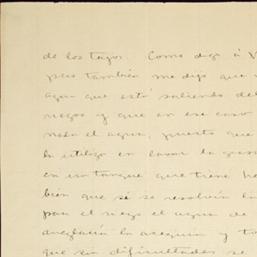 de los tajos. Como digo á V
pues también me dijo que
agua que está saliendo de
riegos y que en ese caso
nada el agua, puesto que
la utilizo en lavar la
en un tanque que tiene he
bién que si se resolvía la
para el riego el agua de
arreglaría la acequia y t
que sin dificultades se